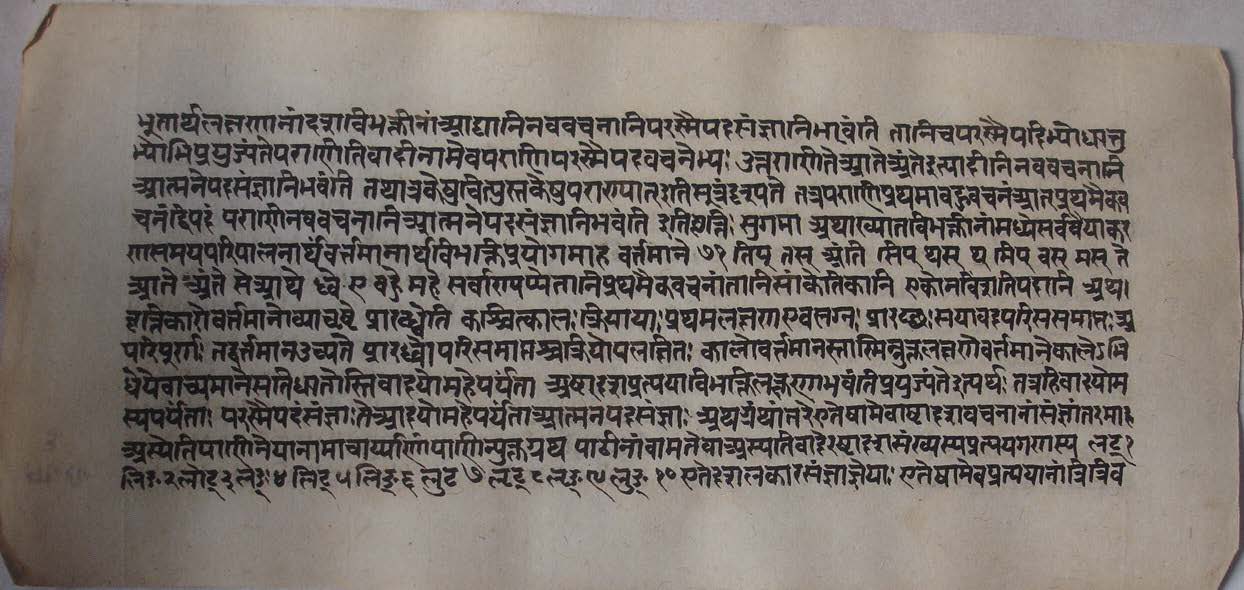 भूतार्थलक्षणानांदशविभक्तीनांआद्यानिनववचनानिपरस्मैपदसंज्ञानिभावंति तानिचपरस्मैपदिभ्योधातु
भ्योभिप्रयुज्यंतेपराणीतिवादीनामेवपराणिपरस्मैपदवचनेभ्यः उत्तराणितेआतेअंतेइत्यादीनिनववचनानि
आत्मनेपदसंज्ञानिभवंति तथात्रवेषुचित्पुस्तकेषुपराण्यातइतिसूत्रंदृश्यते तत्रपराणिप्रथमावद्भवचनंआतप्रथमैकव
चनंद्विपदं पराणीनववचनानिआत्मनेपदसंज्ञानिभवंति इतिवृत्तिः सुगमा अथाख्यातविभक्तीनांमध्येसर्ववैयाकर
णसमयपरिपालनार्थंवर्त्तमानार्थविभक्तिप्रयोगमाह वर्त्तमाने ७१ तिप् तस् अंति सिप थस थ मिप वस मस ते
आते अंते सेआथे ध्वे ए वहे महे सर्वाण्यप्येतानिप्रथमैकवचनांतानिसांकेतिकानि एकोनविंशतिपदानि अथ।
वृत्तिकारोवर्त्तमानेव्याचष्टे प्रारब्धेति कश्चित्कालः क्रियायाः प्रथमलक्षणएवलग्नः प्रारब्धः सयावदपरिससमाप्तः अ
परिपूर्णः तद्वर्त्तमानउच्यते प्रारब्धोपरिसमाप्तश्चक्रियोपलक्षितः कालोवर्त्तमानस्तास्मिन्नुक्तलक्षणेवर्त्तमानेकालेऽभि
धेयेवाच्यमानेसतिधातोस्तिवादयोमहेपर्यंता अष्टादशप्रत्ययाविभक्तिलक्षणाभवंतिप्रयुज्यंतेइत्यर्थः तत्रहिवादयोम
स्यपर्यंताः परस्मैपदसंज्ञाः तेआदयोमहेपर्यंताआत्मनपदसंज्ञाः अथग्रंथांतरेएतेषामेवाष्टादशवचनानांसंज्ञांतरमाह
अस्येतिपाणिनेयानामाचार्य्याणांपाणिन्युक्तग्रंथ पाठीनांवामतेवाअस्यतिवादेरष्टादशसंख्यस्यप्रत्ययगणस्य लट् १
लिङ २ लोट् ३ लङ् ४ लिट् ५ लिङ् ६ लुट ७ लृट् ८ लृङ् ९ लुङ् १० एतेदशलकारसंज्ञाज्ञेयाः एतेषामेवप्रत्ययानांत्रित्रिव